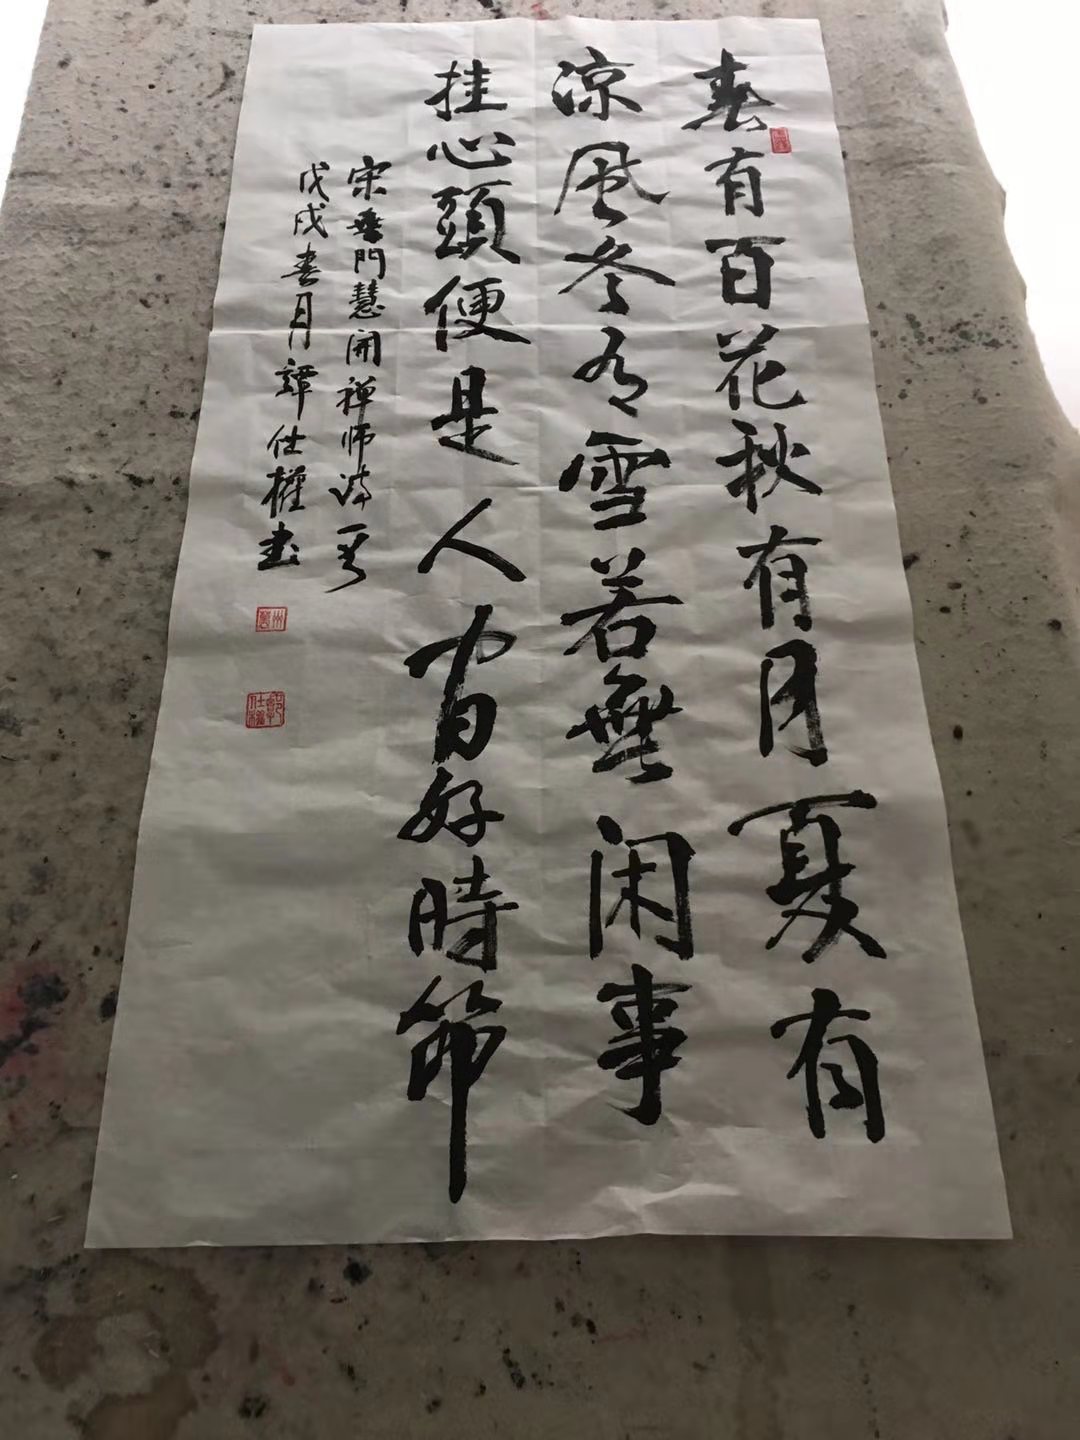 春有百花秋有月夏有
涼風冬有雪若無闲事
挂心頭便是人间好時節
宋無門慧開禅师诗一首
戊戌春月譚仕權书